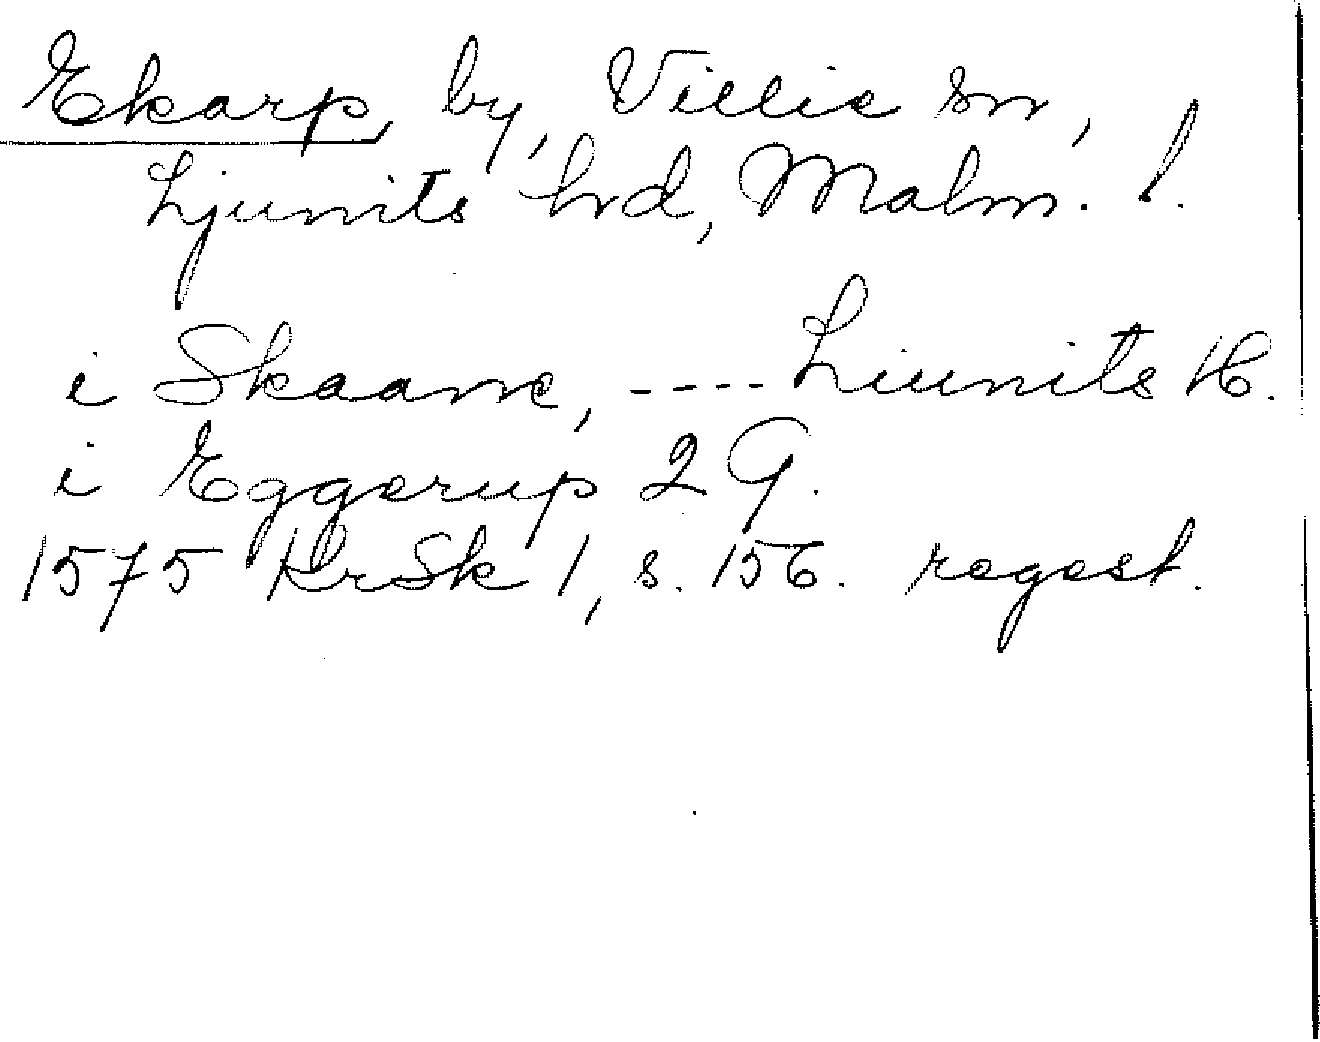 Ekarp, by, Villie sn,
Ljunits hrd, Malm. l.
i Skaane, ---- Liunits H.
i Eggerup 2 G.
1575 KrSk 1, s. 156. regest.